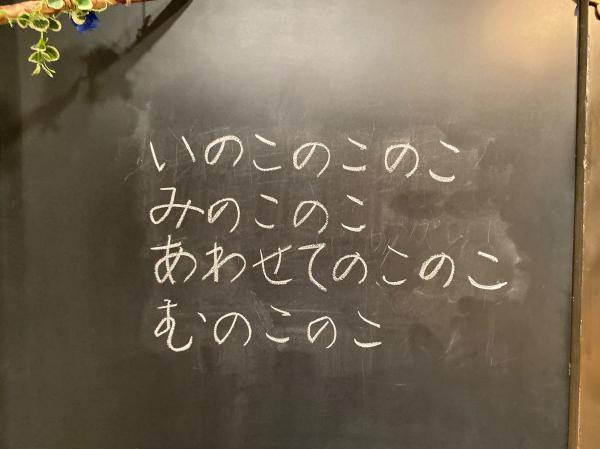 いのこのこのこ
みのこのこ
あわせてのこのこ
むのこのこ